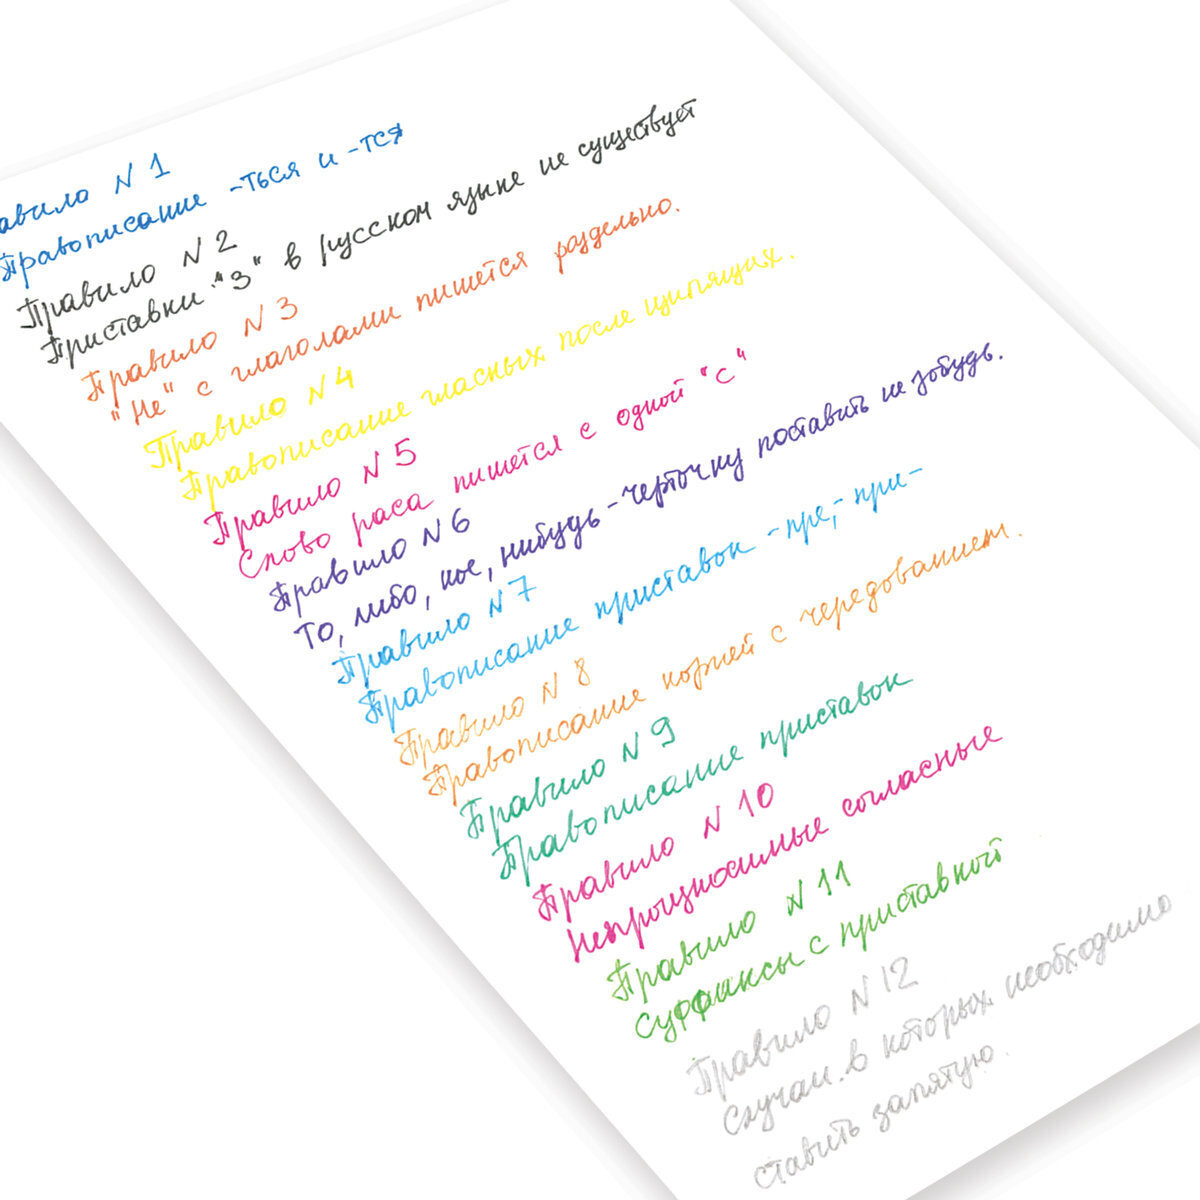 авило N 1
Правописание -ться и -тся
Правило N 2
Приставки "З" в русском языке не существует
Правило N 3
"Не" с глаголами пишется раздельно.
Правило N 4
Правописание гласных после шипящих.
Правило N 5
Слово раса пишется с одной "с"
Правило N 6
То, либо, кое, нибудь - черточку поставить не забудь.
Правило N 7
Правописание приставок -пре,- при-
Правило N 8
Правописание корней с чередованием.
Правило N 9
Правописание приставок
Правило N 10
Непроизносимые согласные
Правило N 11
Суффиксы с приставкой
Правило N 12
Случаи в которых необходимо
ставить запятую.